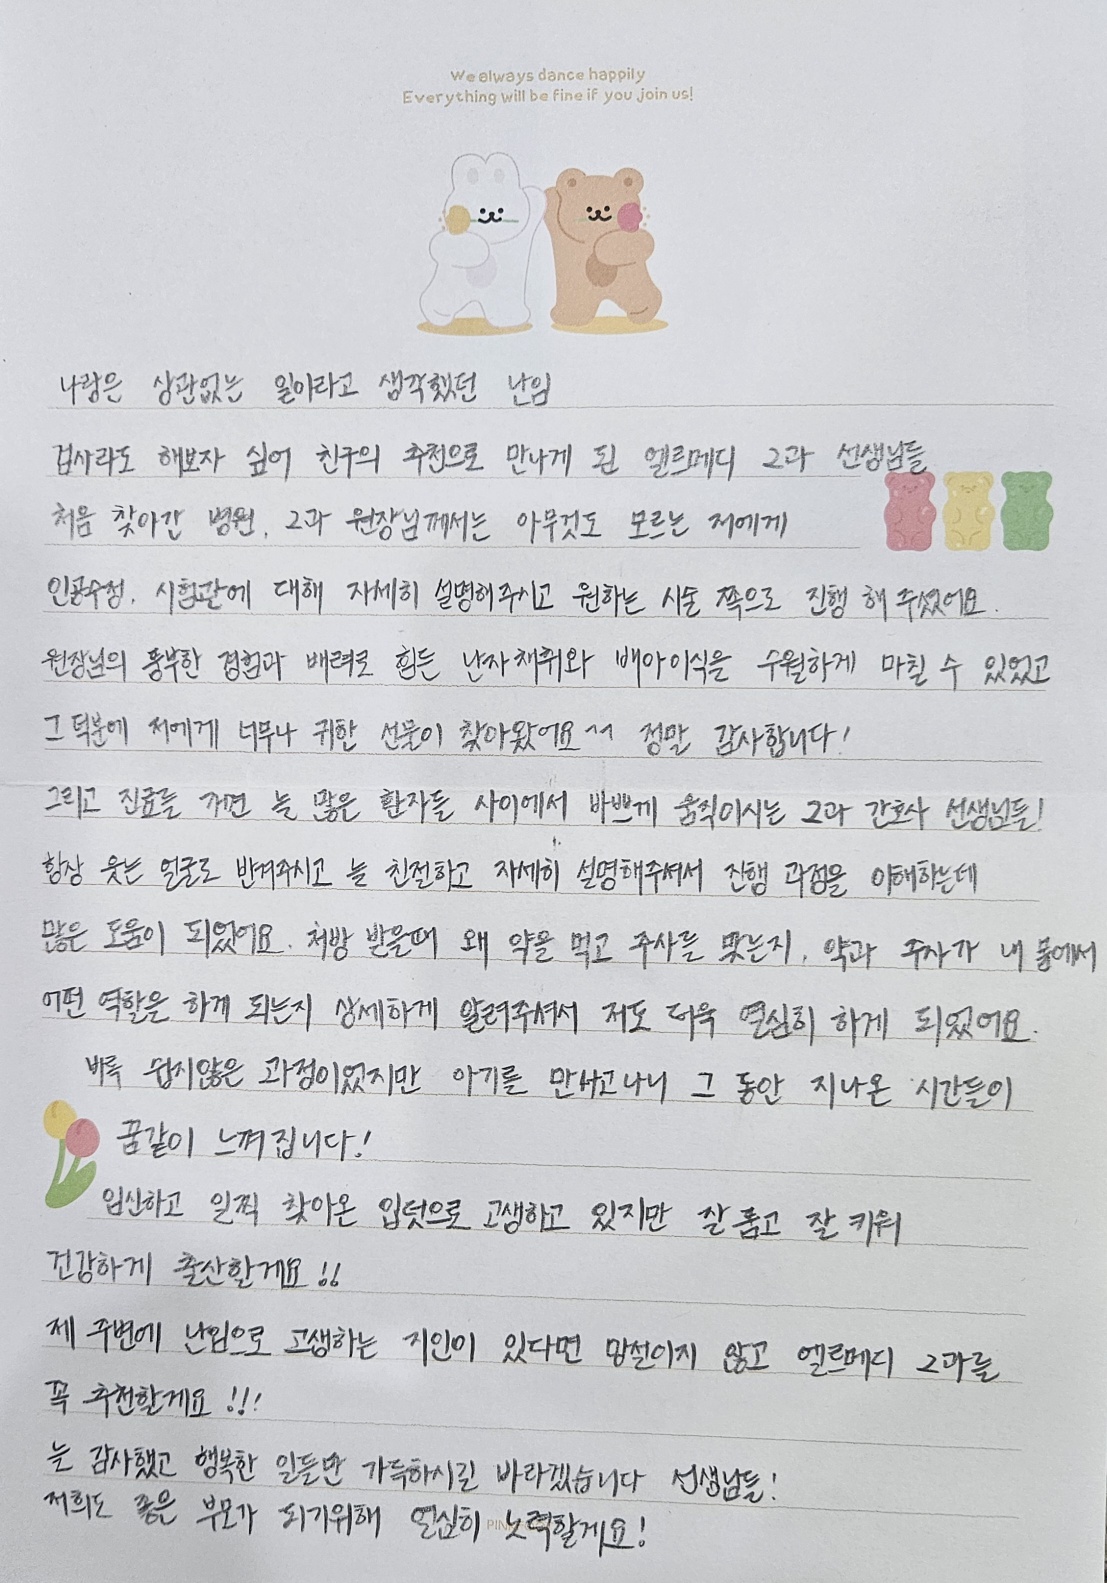 We always dance happily
Everything will be fine if you join us!
나랑은 상관없는 일이라고 생각했던 난임
검사라도 해보자 싶어 친구의 추천으로 만나게 된 엘르메디 2과 선생님들
처음 찾아간 병원, 2과 원장님께서는 아무것도 모르는 저에게
인공수정, 시험관에 대해 자세히 설명해주시고 원하는 시술 쪽으로 진행 해 주셨어요.
원장님의 풍부한 경험과 배려로 힘든 난자채취와 배아이식을 수월하게 마칠 수 있었고
그 덕분에 저에게 너무나 귀한 선물이 찾아왔어요^^ 정말 감사합니다!
그리고 진료를 가면 늘 많은 환자들 사이에서 바쁘게 움직이시는 2과 간호사 선생님들!
항상 웃는 얼굴로 반겨주시고 늘 친절하고 자세히 설명해주셔서 진행 과정을 이해하는데
많은 도움이 되었어요. 처방 받을때 왜 약을 먹고 주사를 맞는지, 약과 주사가 내 몸에서
어떤 역할은 하게 되는지 상세하게 알려주셔서 저도 더욱 열심히 하게 되었어요.
비록 쉽지않은 과정이었지만 아기를 만나고나니 그 동안 지나온 시간들이
꿈같이 느껴집니다!
임신하고 일찍 찾아온 입덧으로 고생하고 있지만 잘 품고 잘 키워
건강하게 출산할게요!!
제 주변에 난임으로 고생하는 지인이 있다면 망설이지 않고 엘르메디 2과를
꼭 추천할게요!!!
늘 감사했고 행복한 일들만 가득하시길 바라겠습니다 선생님들!
저희도 좋은 부모가 되기위해 열심히 노력할게요!